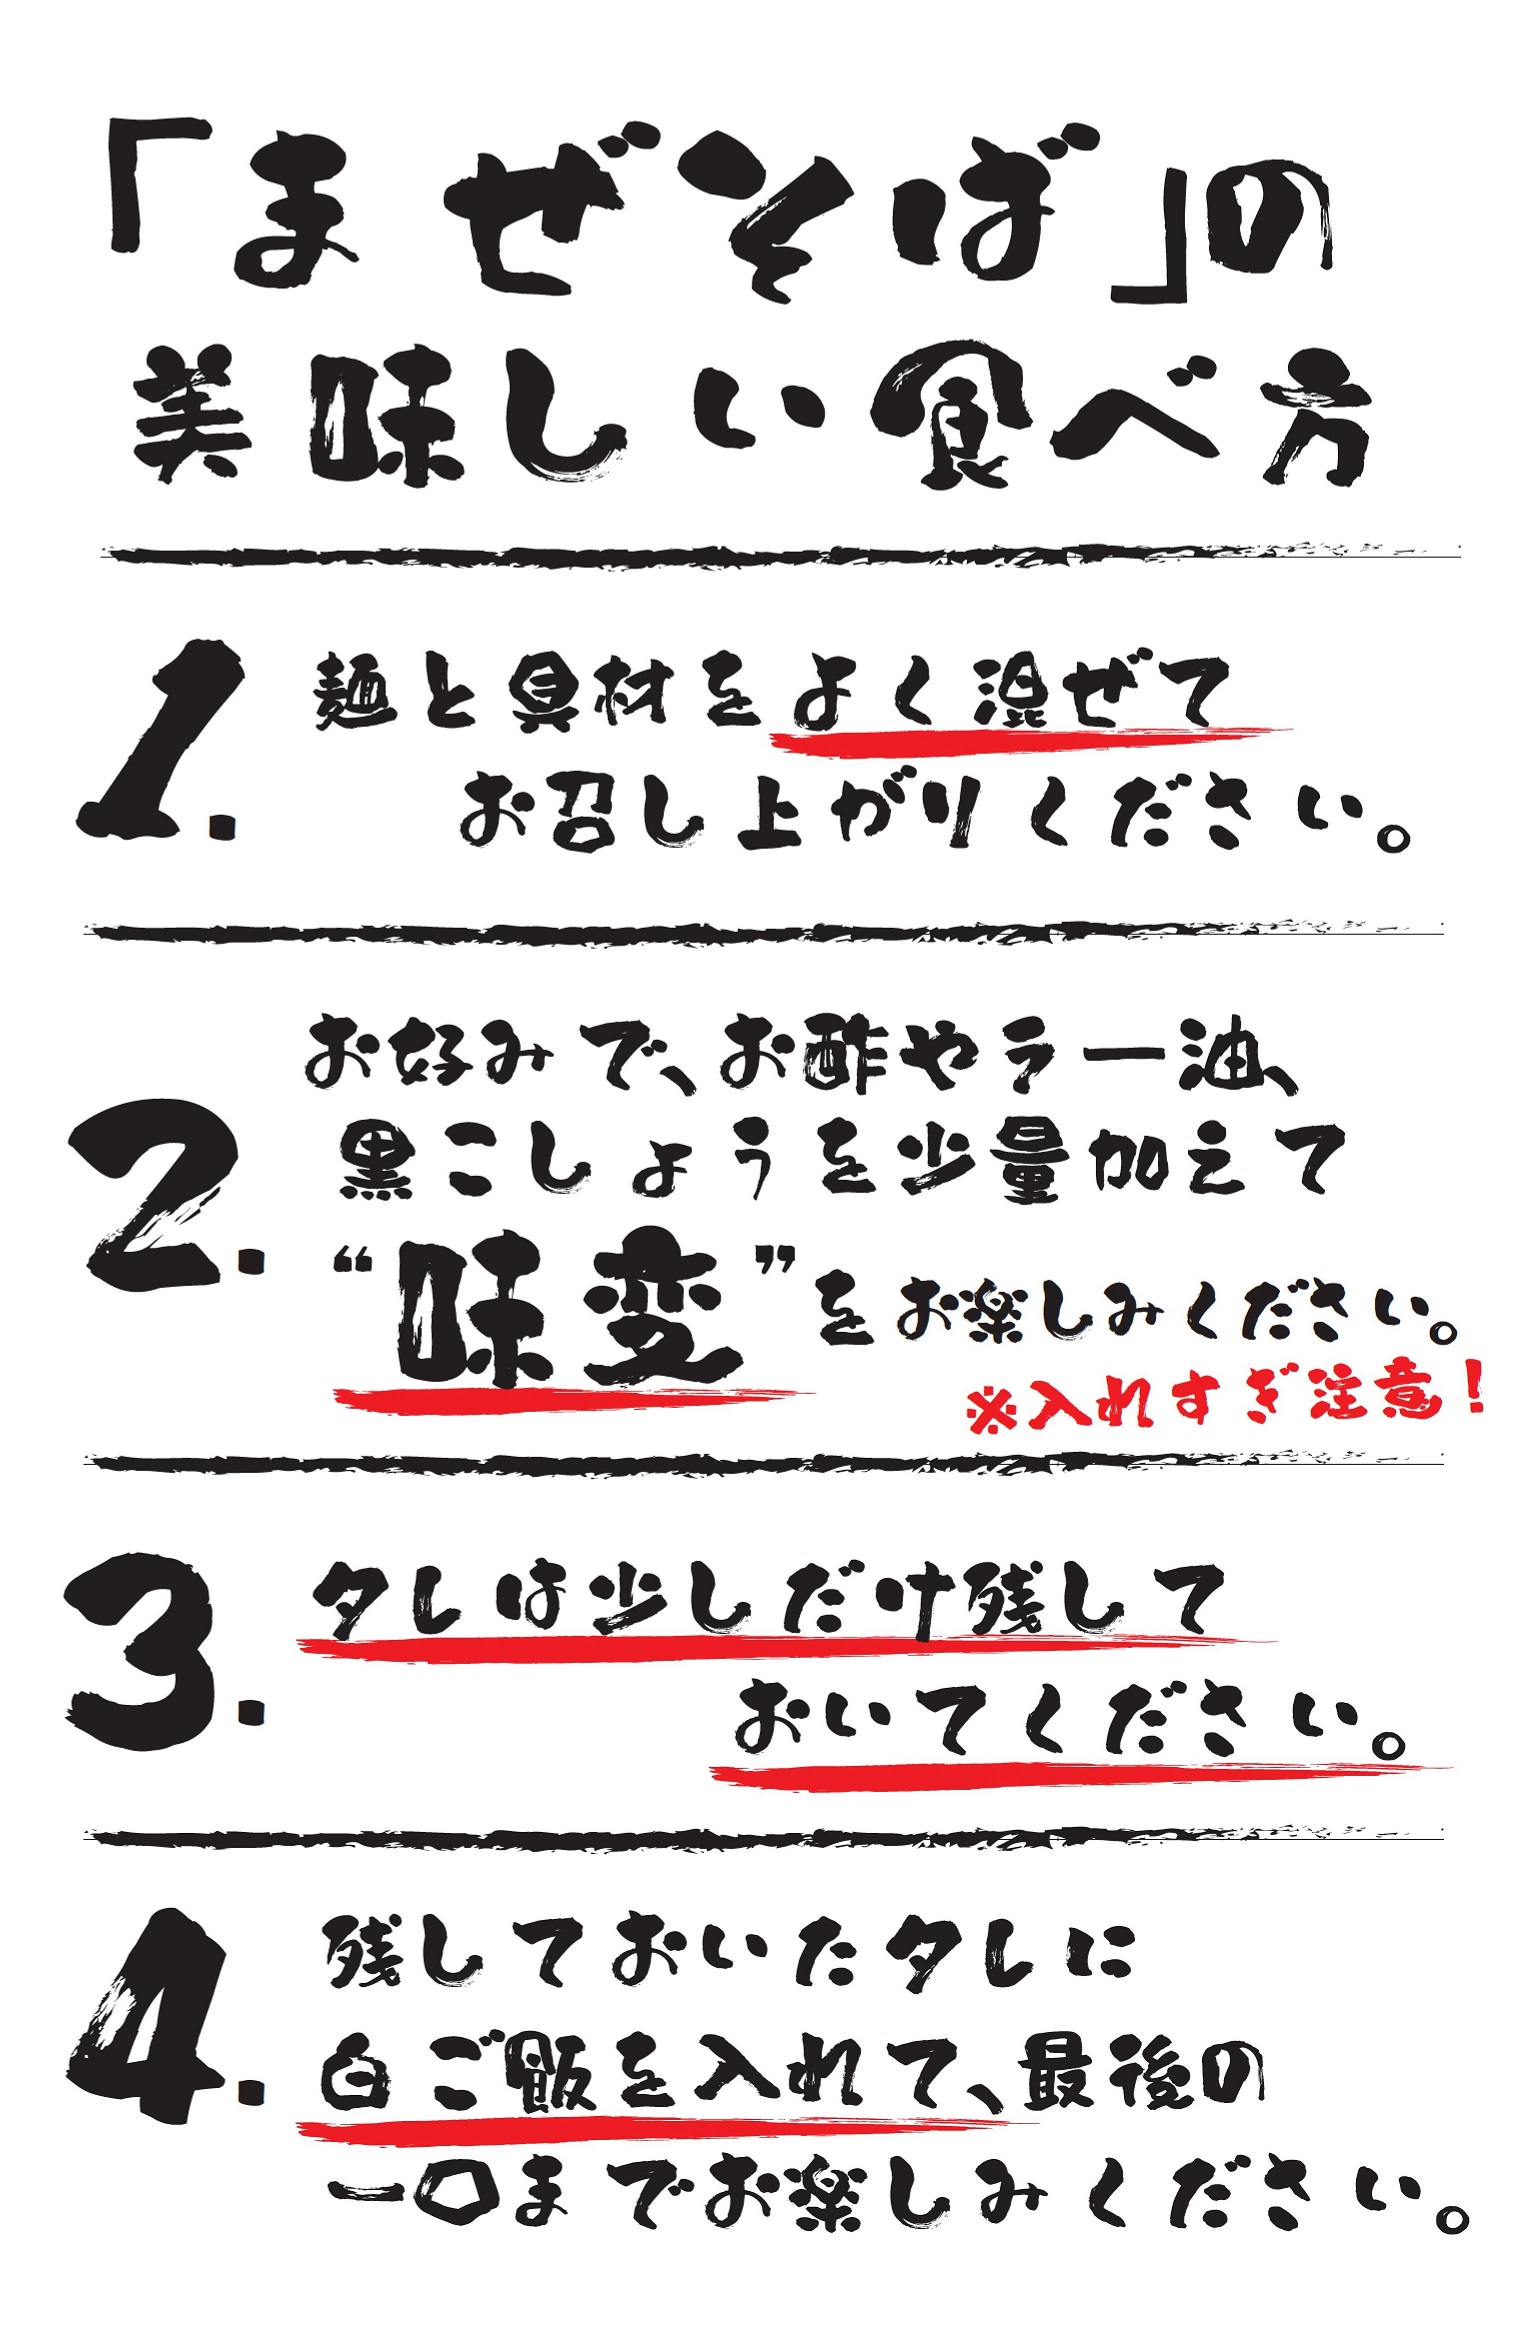 「まぜそば」の
美味しい食べ方
1. 麺と具材をよく混ぜて
お召し上がりください。
2. お好みで、お酢やラー油、
黒こしょうを少量加えて
“味変”をお楽しみください。
※入れすぎ注意！
3. タレは少しだけ残して
おいてください。
4. 残しておいたタレに
白ご飯を入れて、最後の
一口までお楽しみください。